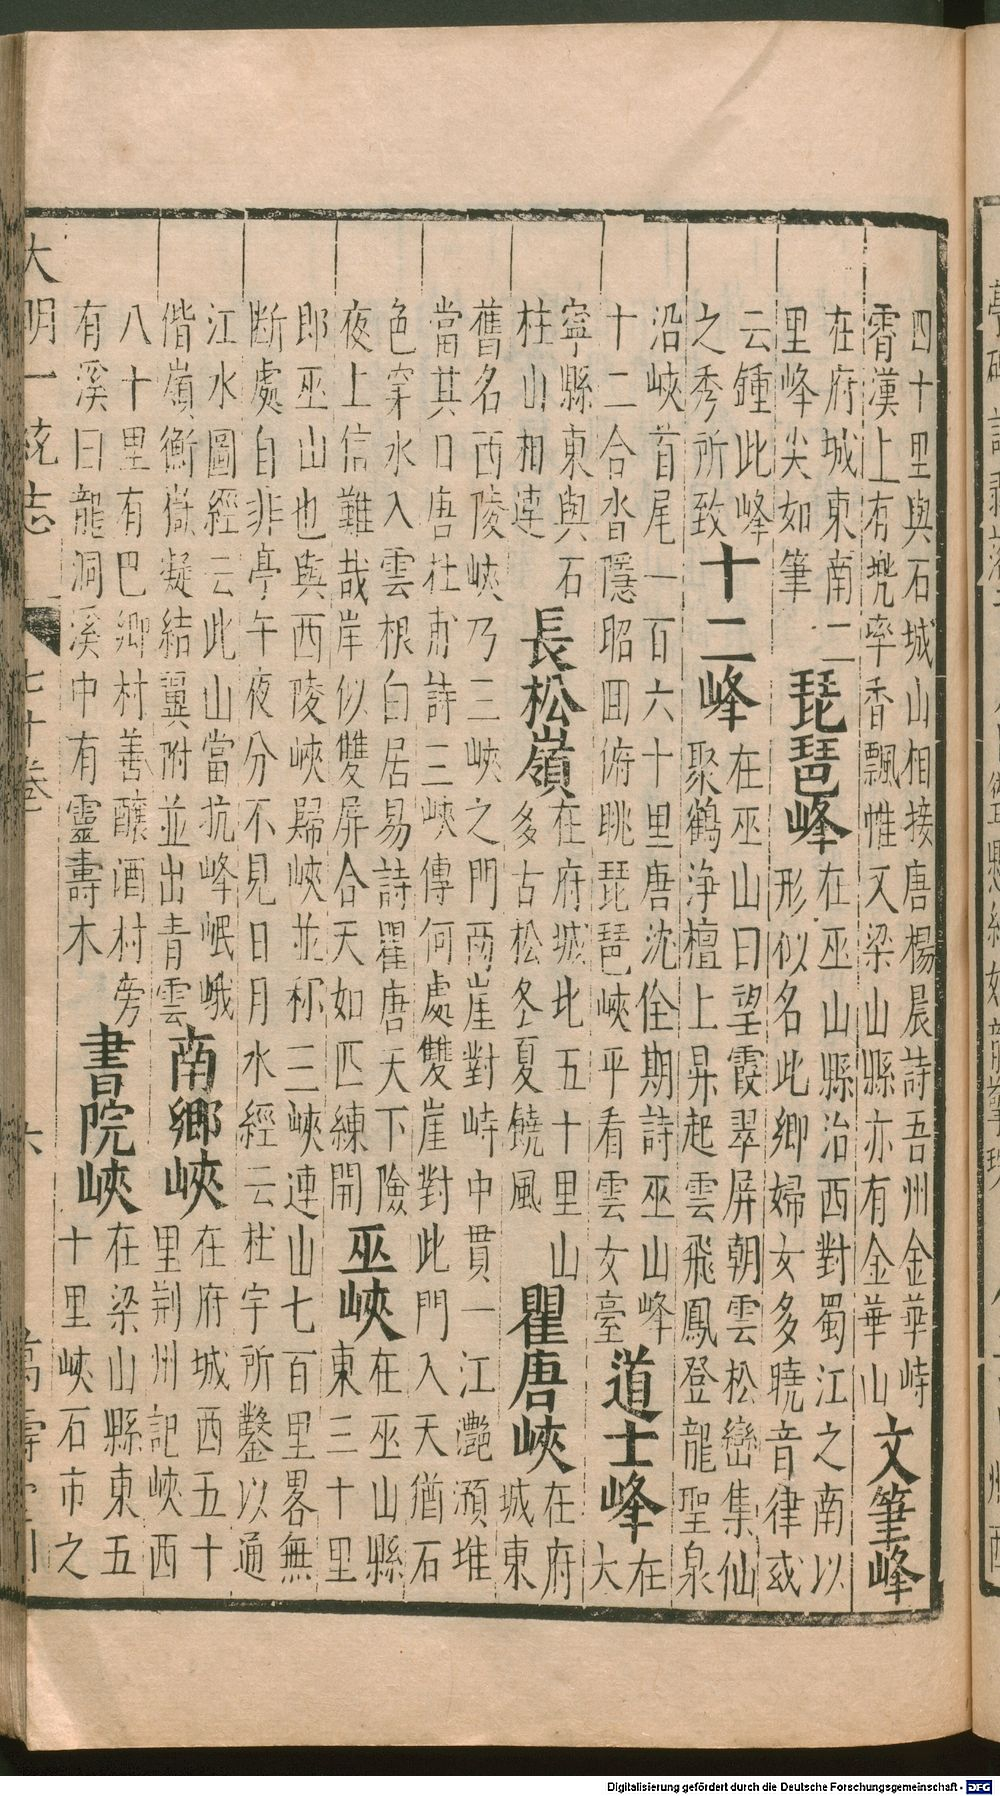 四十里與石城山相接唐楊晨詩吾州金華峙
霄漢上有兠率香飄惟又梁山縣亦有金華山
文筆峰
在府城東南二
里峰尖如筆
琵琶峰
在巫山縣治西對蜀江之南以
形似名此鄉婦女多曉音律或
云鍾此峰
之秀所致
十二峰
在巫山曰望霞翠屏朝雲松巒集仙
聚鶴浄檀上昇起雲飛鳳登龍聖泉
沿峽首尾一百六十里唐沈佺期詩巫山峰
十二合沓隱昭囬俯眺琵琶峽平看雲女臺
道士峰
在
大
寧縣東與石
柱山相連
長松嶺
在府城北五十里山
多古松冬夏饒風
瞿唐峽
在府
城東
舊名西陵峽乃三峽之門兩崖對峙中貫一江灔澦堆
當其口唐杜甫詩三峽傳何處雙崖對此門入天猶石
色穿水入雲根白居易詩瞿唐天下險
夜上信難哉岸似雙屏合天如匹練開
巫峽
在巫山縣
東三十里
即巫山也與西陵峽歸峽並称三峽連山七百里畧無
断處自非亭午夜分不見日月水經云杜宇所鑿以通
江水圖經云此山當抗峰岷峨
偕嶺衡嶽凝結翼附並出青雲
南鄉峽
在府城西五十
里荆州記峽西
八十里有巴鄉村善醸酒村旁
有溪曰龍洞溪中有靈壽木
書院峽
在梁山縣東五
十里峽石市之
大明一統志 七十卷 六 萬壽堂刊
Digitalisierung gefördert durch die Deutsche Forschungsgemeinschaft - DFG